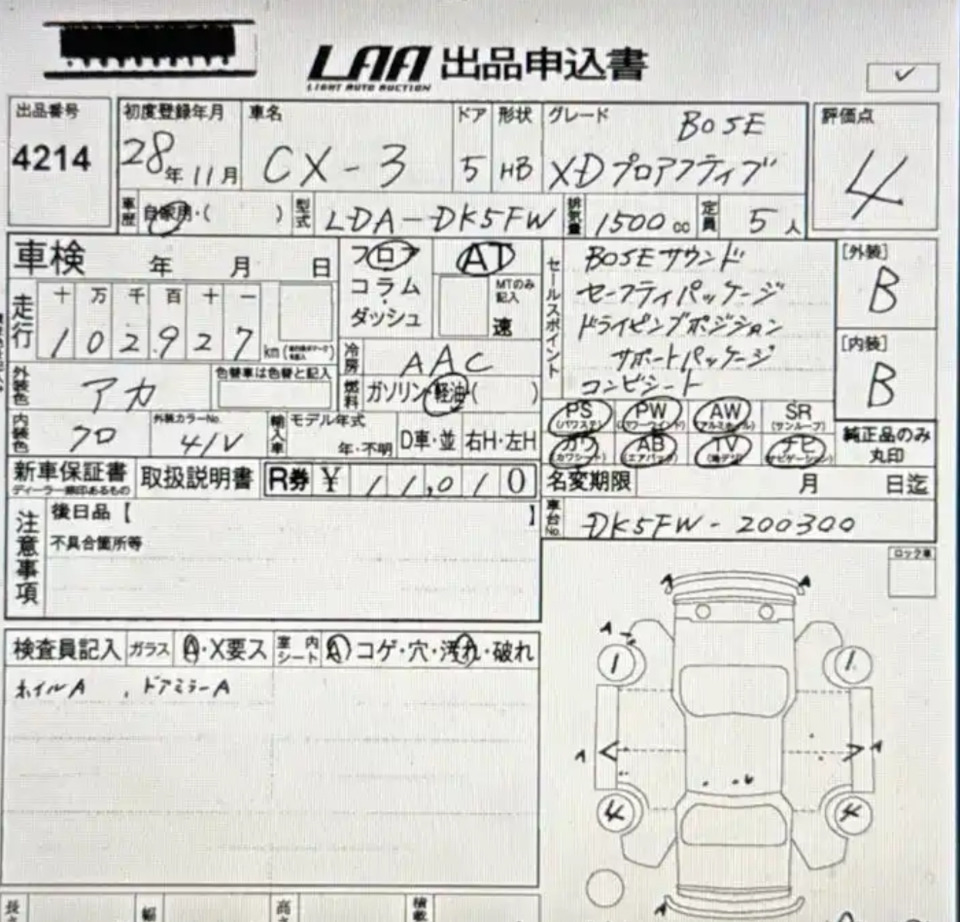 LAA 出品申込書
LIGHT AUTO AUCTION
出品番号
4214
初度登録年月
28年11月
車名
CX-3
ドア
5
形状
HB
グレード
BOSE
XDプロアクティブ
評価点
4
車歴 自家用・( )
型式 LDA-DK5FW
排気量 1500 cc
定員 5人
車検 年 月 日
フロア
コラム
ダッシュ
AT
MTのみ記入
速
セールスポイント
BOSEサウンド
セーフティパッケージ
ドライビングポジション
サポートパッケージ
コンビシート
[外装]
B
[内装]
B
走行
十 万 千 百 十 一
102,927 km
冷房 AAC
外装色 アカ
色替車は色替と記入
燃料 ガソリン・軽油・( )
内装色 クロ
外装カラーNo.
41V
輸入車
モデル年式
年・不明
D車・並
右H・左H
PS (パワステ)
PW (パワーウインド)
AW (アルミホイール)
SR (サンルーフ)
カワ (カワシート)
AB (エアバッグ)
TV (地デジ)
ナビ (ナビゲーション)
純正品のみ丸印
新車保証書
取扱説明書
R券 ¥ 11,010
名変期限 月 日迄
車台No. DK5FW-200300
注意事項
後日品【 】
不具合箇所等
検査員記入
ガラス A・X要ス
室内シート A コゲ・穴・汚れ・破れ
ホイルA , ドアミラーA
A A
A
1 1
A A
4 4
A
長さ 幅 高さ 積載